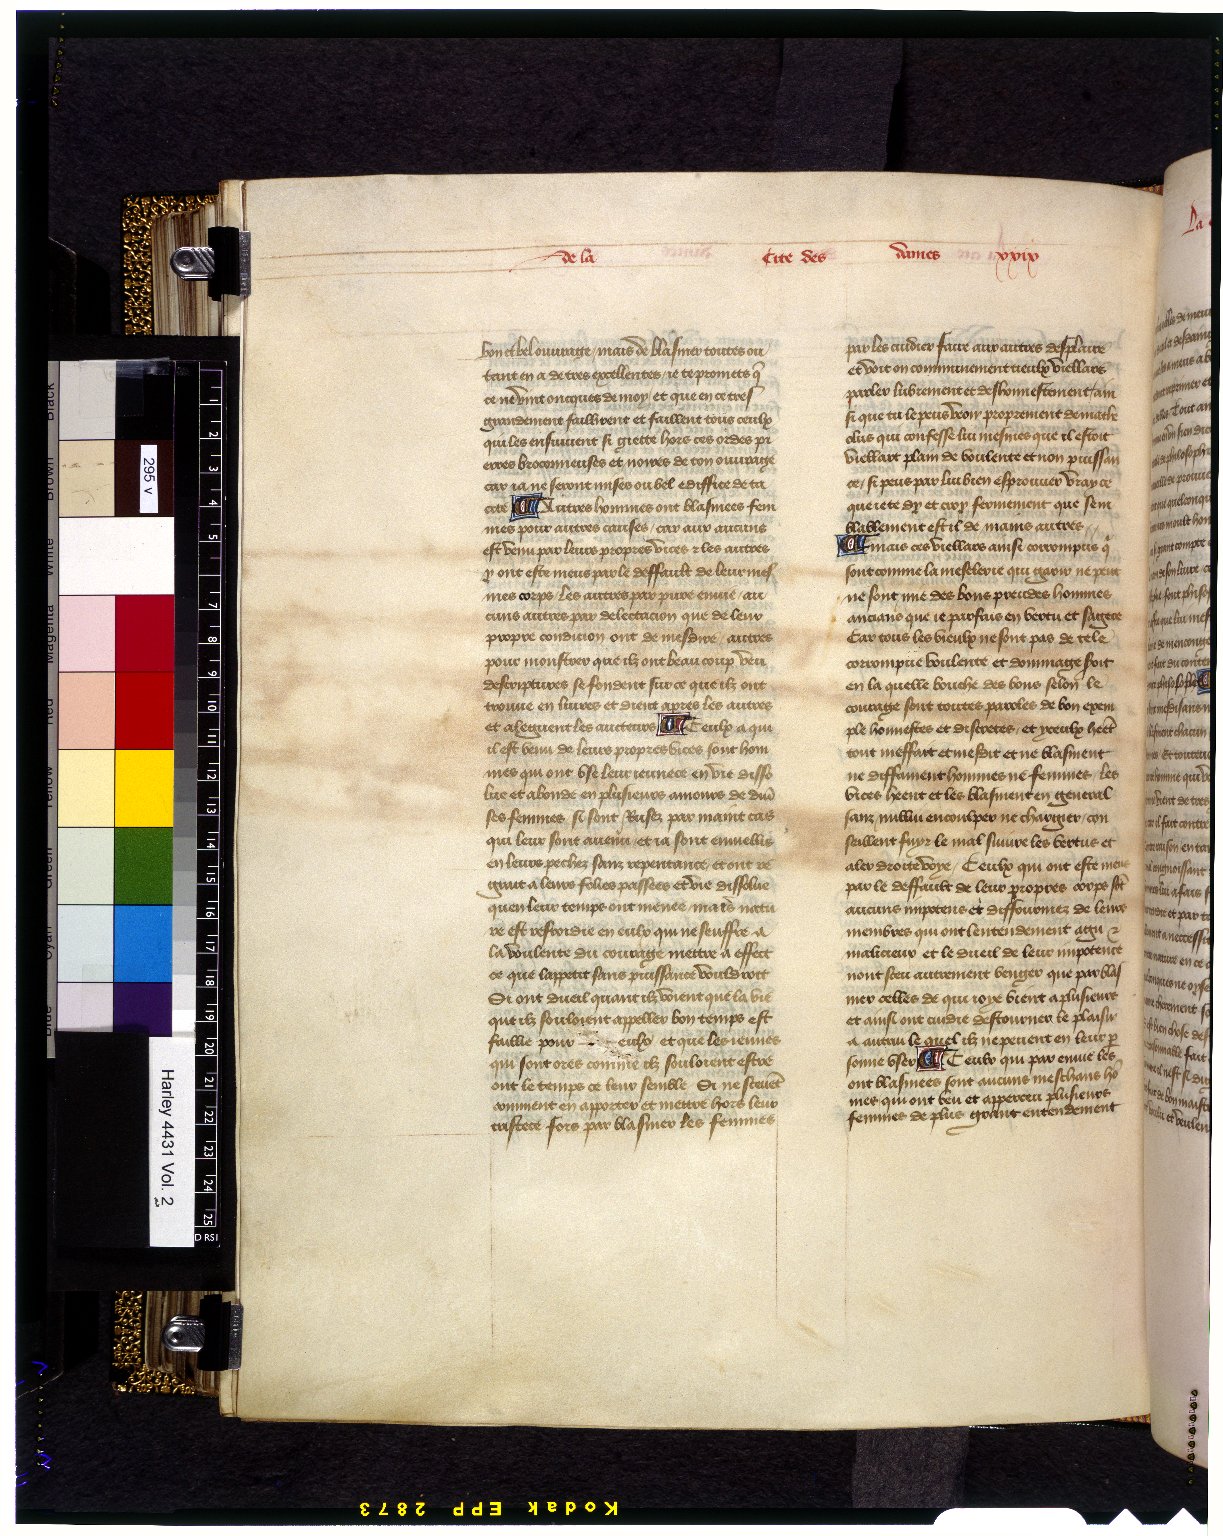 de la Cite des dames xxix
bon et bel ouurage / mais de blasmer toutes ou
tant en a de tres excellentes / ie te promets q̃
ce ne vint oncques de moy / et que en ce tres
grandement faillirent et faillent tous ceulx
qui les ensuiuent si giette hors ces ordes pi
erres broconneuses et noires de ton ouurage
car ia ne seront mises ou bel ediffice de ta
cite Autres hommes ont blasmees fem
mes pour autres causes / car aux aucuns
est venu par leurs propres vices & les autres
y ont este meus par le deffault de leur mes
mes corps / les autres par pure enuie / au
cuns autres par delectacion que de leur
propre condicion ont de mesdire / autres
pour monstrer que ilz ont beaucoup veu
descriptures se fondent sur ce que ilz ont
trouue en liures et dient apres les autres
et aleguent les aucteurs Ceulx a qui
il est venu de leurs propres vices sont hom
mes qui ont vse leur ieunece en vie disso
lue et abonde en plusieurs amours de diu̾
ses femmes si sont rusez par maint cas
qui leur sont auenu / et ia sont enuiellis
en leurs pechez sanz repentance / et ont re
grait a leurs folies passees et vie dissolue
quen leur temps ont menee / mais natu
re est reffroidie en eulx qui ne seuffre a
la voulente du courage mettre a effect
ce que lappetit sans puissance vouldroit
Si ont dueil quant ilz voient que la vie
que ilz souloient appeller bon temps est
faillie pour eulx / et que les ieunes
qui sont ores comme ilz souloient estre
ont le temps ce leur semble Si ne sceuẽt
comment en apporter et mettre hors leur
tristece fors par blasmer les femmes
par les cuidier faire aux autres desplaire
et voit on communement tieulx viellars
parler lubrement et deshonnestement / ain
si que tu le peus veoir proprement de mathe
olus qui confesse lui mesmes que il estoit
viellart plain de voulente et non puissan
ce / si peus par lui bien esprouuer vray ce
que ie te dy et croy fermement que sem
blablement est il de mains autres
mais ces viellars ainsi corrompus q̃
sont comme la meselerie qui garir ne peut
ne sont mie des bons preudes hommes
ancians que ie parfais en vertu et sagece
Car tous les vieulx ne sont pas de tele
corrompue voulente et dommage soit
en la quelle bouche des bons selon le
courage sont toutes paroles de bon exem
ple honnestes et discretes / et yceulx heẽt
tout meffait et mesdit et ne blasment
ne diffament hommes ne femmes / les
vices heent et les blasment en general
sanz nullui encoulper ne chargier / con
seillent fuyr le mal suiure les vertus et
aler droitte voye / Ceulx qui ont este meus
par le deffault de leur propres corps sõt
aucuns impotens et diffourmez de leurs
membres qui ont lentendement agu &
malicieux et le dueil de leur impotence
nont sceu autrement venger que par blas
mer celles de qui ioye vient a plusieurs
et ainsi ont cuidie destourner le plaisir
a autrui le quel ilz ne peuent en leur p̱
sonne vser Ceulx qui par enuie les
ont blasmees sont aucuns meschans hõ
mes qui ont veu et apperceu plusieurs
femmes de plus grant entendement
La
295 v
Harley 4431 Vol. 2
Black
Brown
White
Magenta
Red
Yellow
Green
Cyan
Blue
1
2
3
4
5
7
8
9
10
11
12
13
14
15
16
17
18
19
20
21
22
23
24
25
Kodak EPP 2873